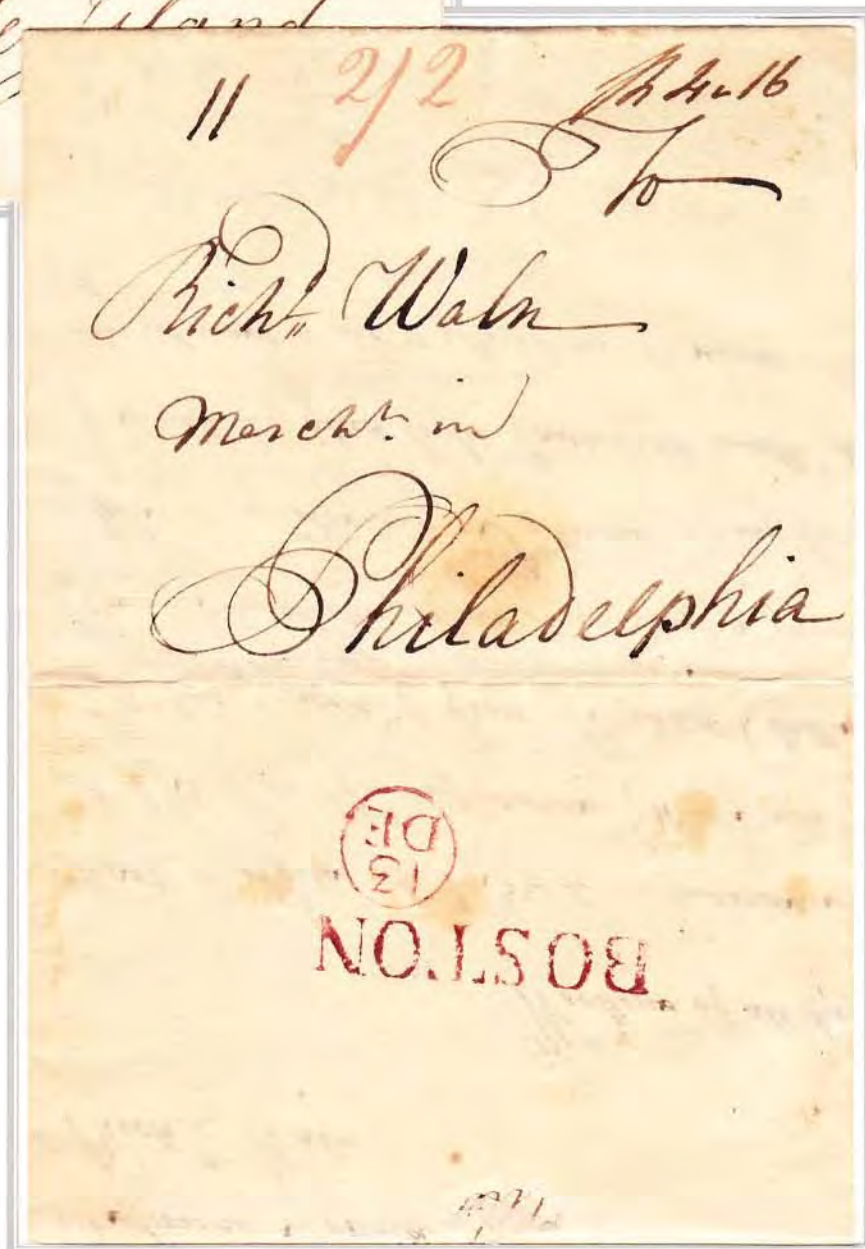 Island
11 2/2 4 16
To
Richd Waln
Mercht. in
Philadelphia
13
DE
BOSTON